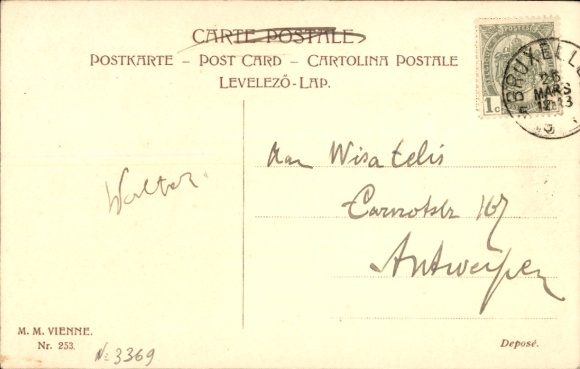 CARTE POSTALE
POSTKARTE – POST CARD – CARTOLINA POSTALE
LEVELEZŐ-LAP.
1c
BRUXELLE
26
MARS
12-13
Walter.
Carnotstr 167
Antwerpen
M. M. VIENNE.
Nr. 253.
№ 3369
Deposé.